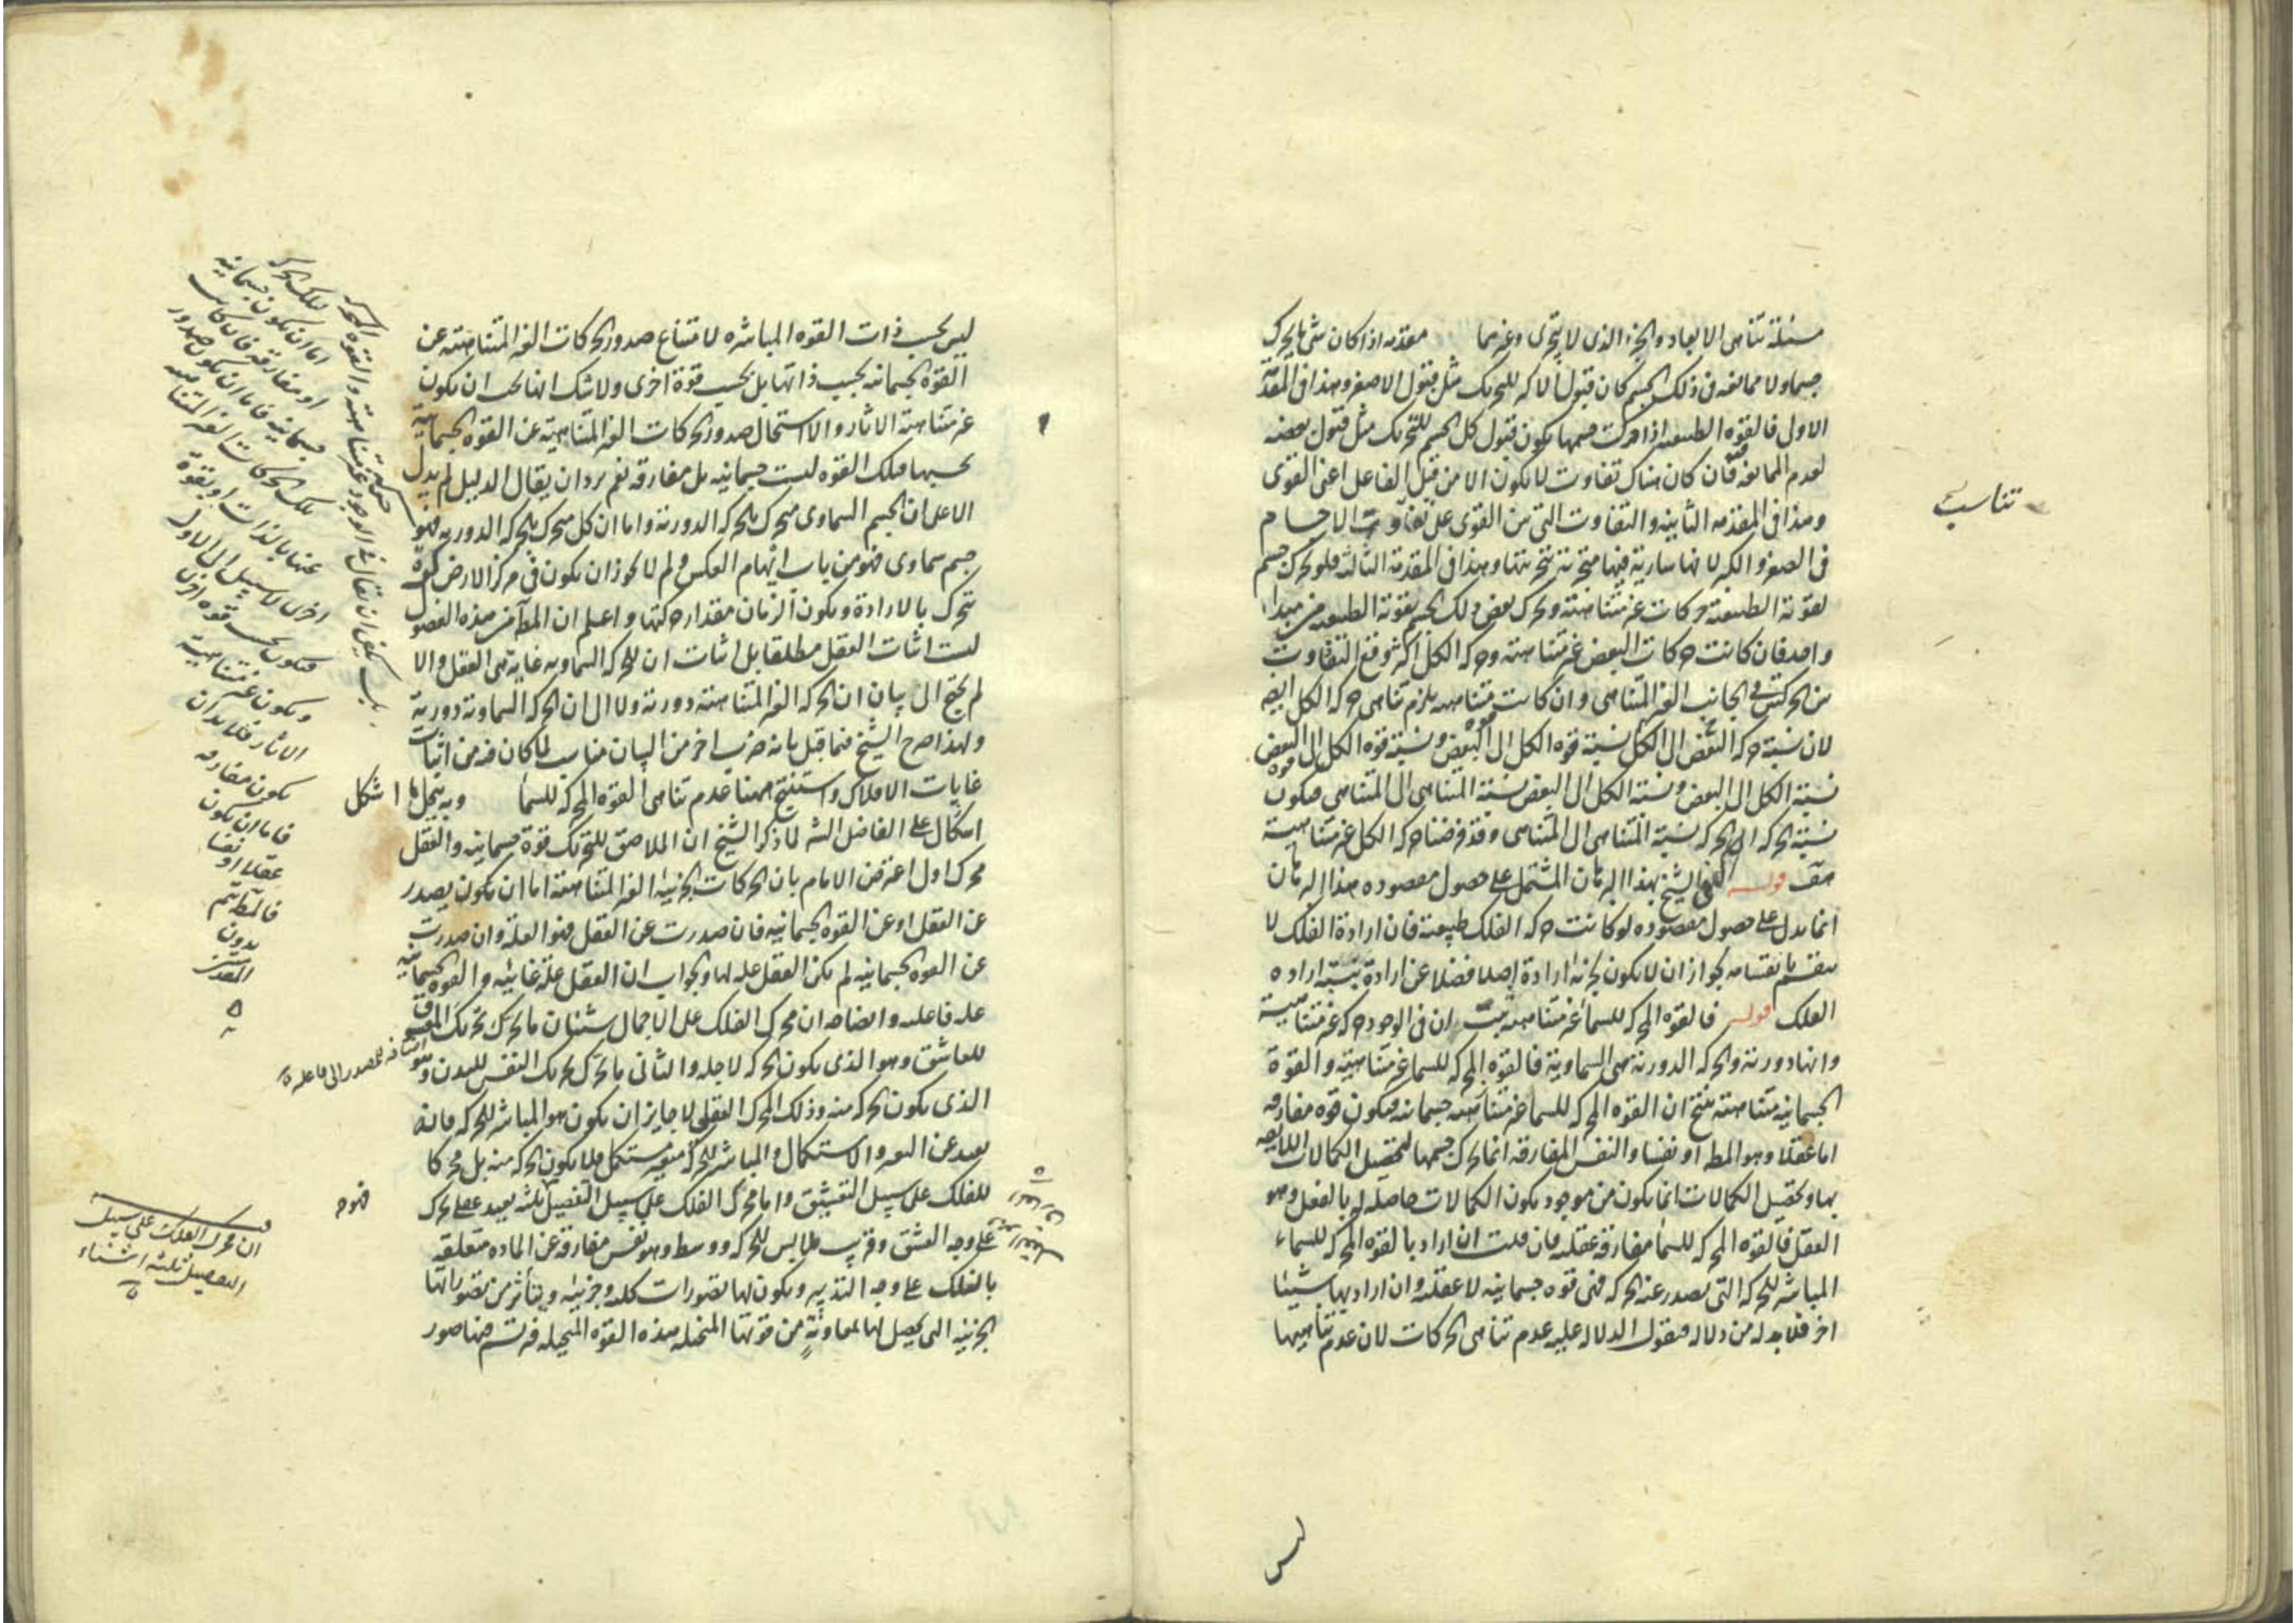 مسئلة تناهى الابعاد والجزء الذى لا يتجزى وغيرهما مقدمه اذا كان شئ ما يحرك
جسما ولا ممانعه فى ذلك الجسم كان قبول الاكبر للتحريك مثل قبول الاصغر وهذا فى المقدمة
الاول فالقوه الطبيعيه اذا حركت جسمها يكون قبول كل الجسم للتحريك مثل قبول بعضه
لعدم الممانعه فان كان هناك تفاوت لا يكون الا من قبل الفاعل اعنى القوى
وهذا فى المقدمه الثانيه والتفاوت التى من القوى على تفاوت الاجسام
فى الصغر والكبر لانها سارية فيها متجزية بتجزيتها وهذا فى المقدمة الثالثه فلو تحرك جسم
بقوته الطبيعية حركات غير متناهية وتحرك بعض ذلك الجسم بقوته الطبيعيه من مبداء
واحد فان كانت حركات البعض غير متناهيه وحركه الكل اكثر وقع التفاوت
بين الحركتين فى الجانب الغير المتناهى وان كانت متناهيه يلزم تناهى حركه الكل ايضه
لان نسبة حركه البعض الى الكل نسبة قوه الكل الى البعض ونسبة قوه الكل الى البعض
نسبة الكل الى البعض ونسبة الكل الى البعض نسبة المتناهى الى المتناهى فيكون
نسبة الحركه الى الحركه نسبة المتناهى الى المتناهى وقد فرضنا حركه الكل غير متناهية
هف قوله الشيخ بهذا البرهان المشتمل على حصول مقصوده هذا البرهان
انما يدل على حصول مقصوده لو كانت حركه الفلك طبيعية فان ارادة الفلك لا
ينقسم بانقسامه لجواز ان لا يكون لجزئه ارادة اصلا فضلا عن ارادة نسبة اراده
الفلك قوله فالقوه المحركه للسماء غير متناهيه ثبت ان فى الوجود حركه غير متناهية
وانها دورية والحركه الدورية هى السماوية فالقوه المحركه للسماء غير متناهية والقوة
الجسمانيه متناهية ينتج ان القوه المحركه للسماء غير متناهيه جسمانيه فيكون قوه مفارقه
اما عقلا وهو المط او نفسا والنفس المفارقه انما تحرك جسمها لتحصيل الكمالات اللايقه
بها وتحصيل الكمالات انما يكون من موجود يكون الكمالات حاصله له بالفعل وهو
العقل فالقوه المحركه للسماء مفارقه عقليه فان قلت ان اراد بالقوه المحركه للسماء
المباشره للحركه التى يصدر عنه الحركه فهى قوه جسمانيه لا عقليه وان اراد بها شيئا
اخر فلا بد له من دلاله فنقول الدلاله عليه عدم تناهى الحركات لان عدم تناهيها
تناسب
ليس
ليس بحسب ذات القوه المباشره لامتناع صدور الحركات الغير المتناهيه عن
القوه الجسمانيه بحسب ذاتها بل بحسب قوة اخرى ولا شك انها يجب ان يكون
غير متناهية الاثار والا استحال صدور الحركات الغير المتناهية عن القوه الجسمانية
بحسبها فتلك القوه ليست جسمانيه بل مفارقه نعم يرد ان يقال الدليل لم يدل
الا على ان الجسم السماوى متحرك بالحركه الدورية واما ان كل متحرك بالحركه الدوريه فهو
جسم سماوى فهو من باب ايهام العكس ولم لا يجوز ان يكون فى مركز الارض كره
تتحرك بالارادة ويكون الزمان مقدار حركتها واعلم ان المط من هذه الفصول
ليست اثبات العقل مطلقا بل اثبات ان للحركه السماويه غاية هى العقل والا
لم يحتج الى بيان ان الحركه الغير المتناهية دورية ولا الى ان الحركه السماوية دورية
ولهذا صرح الشيخ فيما قبل بانه ضرب اخر من البيان مناسب لما كان فيه من اثبات
غايات الافلاك واستنتج ههنا عدم تناهى القوه المحركه للسماء وبه ينحل ما اشكل
اشكال على الفاضل الشه لما ذكر الشيخ ان الملاصق للتحريك قوة جسمانيه والعقل
محرك اول اعترض الامام بان الحركات الجزئيه الغير المتناهية اما ان يكون يصدر
عن العقل او عن القوه الجسمانيه فان صدرت عن العقل فهو العلة وان صدرت
عن القوه الجسمانيه لم يكن العقل عله لها والجواب ان العقل علة غائيه والقوه الجسمانيه
عله فاعليه وايضاحه ان محرك الفلك على الاجمال شيئان ما يحرك تحريك المعشوق
للعاشق وهو الذى يكون الحركه لاجله والثانى ما يحرك تحريك النفس للبدن وهو
الذى يكون الحركه منه وذلك المحرك العقلى لا جايز ان يكون هو المباشر للحركه فانه
بعيد عن التغير والاستكمال والمباشر للحركه متغير مستكمل فلا يكون الحركه منه بل محركا
للفلك على سبيل التعشيق واما محرك الفلك على سبيل التفصيل ثلثه بعيد عقلى يحرك
على وجه العشق وقريب ملابس للحركه ووسط وهو نفس مفارقه عن الماده متعلقه
بالفلك على وجه التدبير ويكون لها تصورات كليه وجزئيه ويتأثر من تصوراتها
الجزئيه التى يحصل لها بمعاونة من قوتها المتخيله هذه القوه المتخيله فيرتسم فيها صور
يكفى ان يقال فى الوجود حركة غير متناهية والقوه المحركه
لتلك الحركه
اما ان يكون جسمانيه
او مفارقه فان كانت
جسمانيه فاما ان يكون صدور
تلك الحركات الغير المتناهيه
عنها بالذات او بقوة
اخرى لا سبيل الى الاول
فيكون بحسب قوه اخرى
ويكون غير متناهية
الاثار فلا بد ان
يكون مفارقه
فاما ان يكون
عقلا او نفسا
فالمط يتم
بدون
المقدمتين
اضافه المصدر الى فاعله
ان محرك الفلك على سبيل
التفصيل ثلثه اشياء